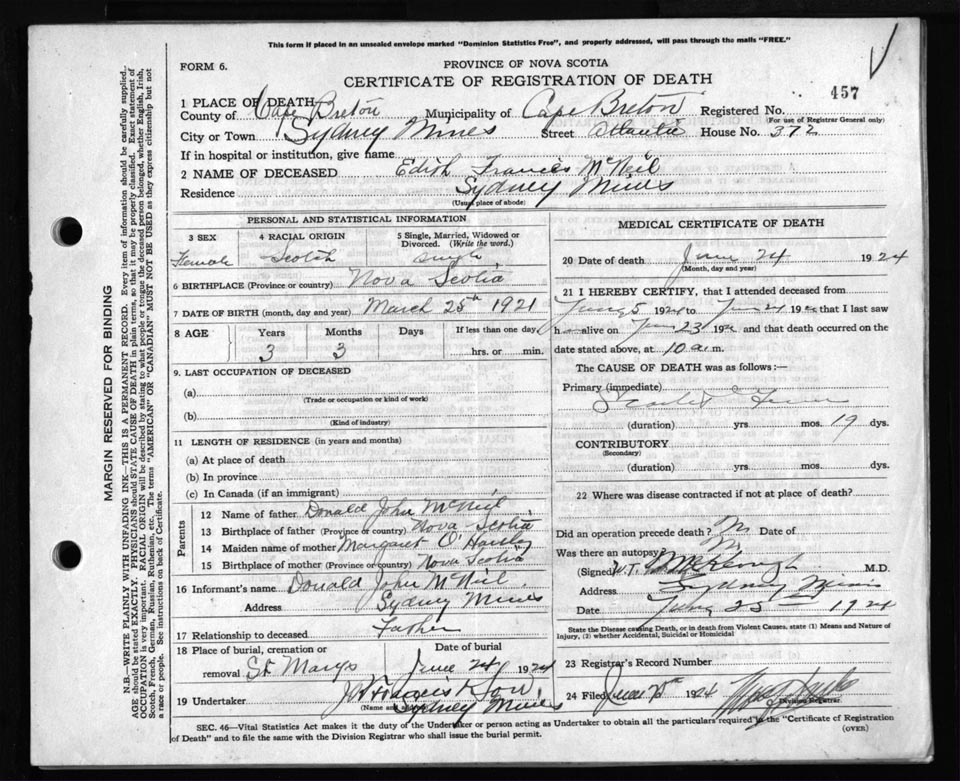 This form if placed in an unsealed envelope marked "Dominion Statistics Free", and properly addressed, will pass through the mails "FREE."
FORM 6.
PROVINCE OF NOVA SCOTIA
CERTIFICATE OF REGISTRATION OF DEATH
457
1 PLACE OF DEATH
County of Cape Breton Municipality of Cape Breton Registered No.
(For use of Registrar General only)
City or Town Sydney Mines Street Atlantic House No. 372
If in hospital or institution, give name
2 NAME OF DECEASED Edith Francis McNeil
Residence Sydney Mines
(Usual place of abode)
PERSONAL AND STATISTICAL INFORMATION
3 SEX 4 RACIAL ORIGIN 5 Single, Married, Widowed or Divorced. (Write the word.)
Female Scotch single
6 BIRTHPLACE (Province or country) Nova Scotia
7 DATE OF BIRTH (month, day and year) March 25th 1921
8 AGE Years Months Days If less than one day
3 3 hrs. or min.
9. LAST OCCUPATION OF DECEASED
(a)
(Trade or occupation or kind of work)
(b)
(Kind of industry)
11 LENGTH OF RESIDENCE (in years and months)
(a) At place of death
(b) In province
(c) In Canada (if an immigrant)
Parents
12 Name of father Donald John McNeil
13 Birthplace of father (Province or country) Nova Scotia
14 Maiden name of mother Margaret O'Handley
15 Birthplace of mother (Province or country) Nova Scotia
16 Informant's name Donald John McNeil
Address Sydney Mines
17 Relationship to deceased Father
18 Place of burial, cremation or removal St Marys
Date of burial June 24 1924
19 Undertaker Francis
(Name and
Sydney Mines
MEDICAL CERTIFICATE OF DEATH
20 Date of death June 24 1924
(Month, day and year)
21 I HEREBY CERTIFY, that I attended deceased from
June 5 1924 to June 24 1924 that I last saw
h alive on June 23 1924 and that death occurred on
date stated above, at 10 a.m.
The CAUSE OF DEATH was as follows:—
Primary (immediate)
Scarlet Fever
(duration) yrs. mos. 19 dys.
CONTRIBUTORY
(Secondary)
(duration) yrs. mos. dys.
22 Where was disease contracted if not at place of death?
Did an operation precede death? No Date of
Was there an autopsy? No
(Signed) W.T. McKeough M.D.
Address Sydney Mines
Date June 25th 1924
State the Disease causing Death, or in death from Violent Causes, state (1) Means and Nature of Injury, (2) whether Accidental, Suicidal or Homicidal
23 Registrar's Record Number
24 Filed June 1924
Division Registrar
SEC. 46—Vital Statistics Act makes it the duty of the Undertaker or person acting as Undertaker to obtain all the particulars required in the "Certificate of Registration
of Death" and to file the same with the Division Registrar who shall issue the burial permit.
(OVER)
MARGIN RESERVED FOR BINDING
N.B.—WRITE PLAINLY WITH UNFADING INK—THIS IS A PERMANENT RECORD. Every item of information should be carefully supplied.
AGE should be stated EXACTLY. PHYSICIANS should STATE CAUSE OF DEATH in plain terms, so that it may be properly classified. Exact statement of
OCCUPATION is very important. RACIAL ORIGIN will be described by stating to what people or tongue the deceased person belonged, whether English, Irish,
Scotch, French, German, Russian, Ruthenian, etc. The terms "AMERICAN" OR "CANADIAN" MUST NOT BE USED as they express citizenship but not
a race or people. See instructions on back of Certificate.